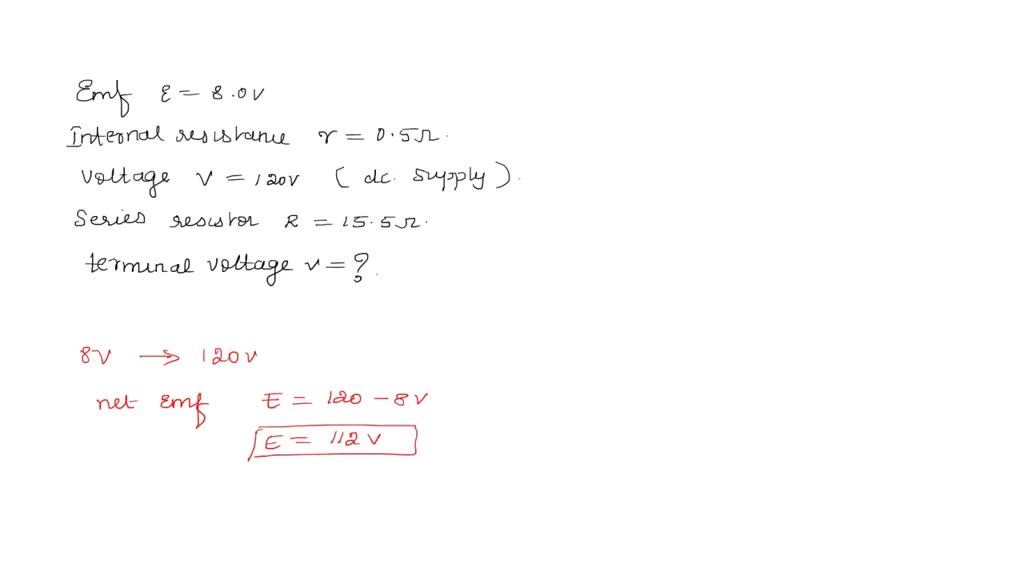 Emf ε = 8.0V
Internal resistance r = 0.5Ω.
Voltage V = 120V ( dc. Supply ).
Series resistor R = 15.5Ω.
terminal voltage v = ?.
8V → 120V
net Emf E = 120 - 8V
E = 112V